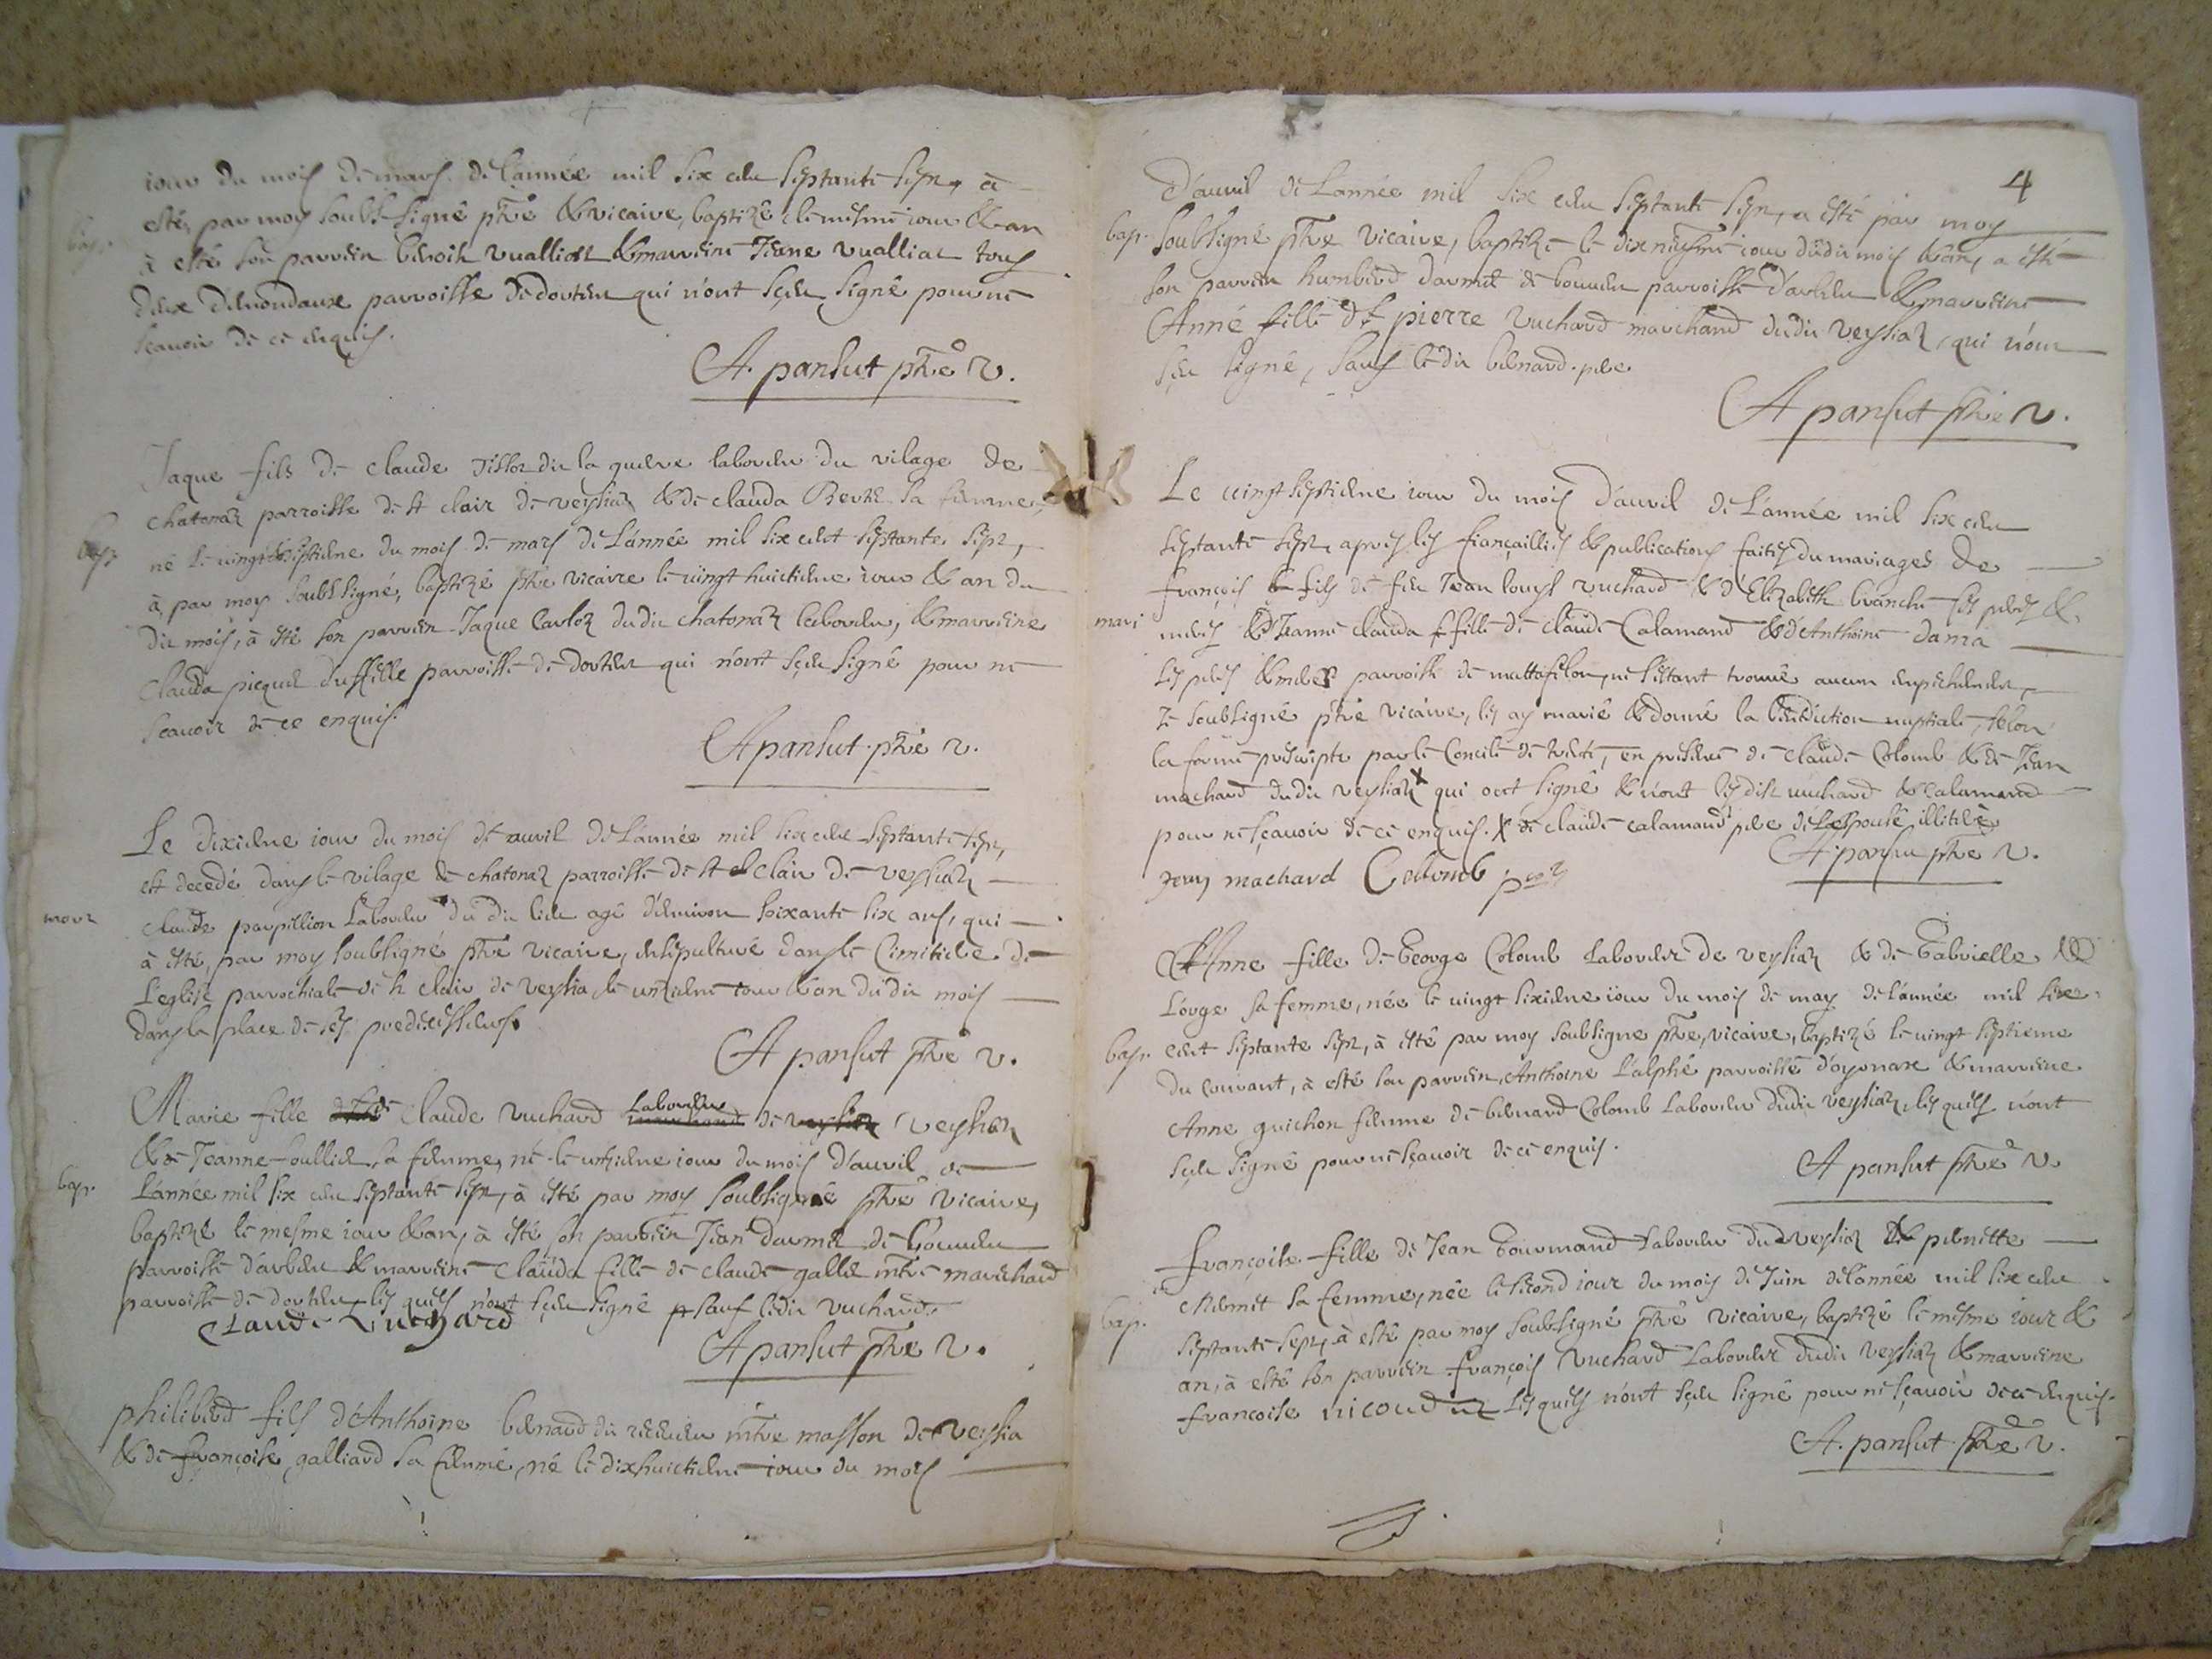 iour du mois de mars de L'année mil six cent septante sept, à
esté, par moy soubs signé ptre & vicaire, baptizé le mesme iour & an
bap.
à esté son parrein benoit vualliat & marreine Jeane vualliat tous
deux parroisse de dortent qui n'ont sçeu signé pour ne
sçavoir de ce enquis.
A. pansut ptre v.
Jaque fils de claude dit la laboreur du vilage de
chatonaz parroisse de st clair de veysiaz & de clauda sa femme
bap.
né le vingt septiene du mois de mars de L'année mil six cent septante sept,
à, par moy soubssigné, baptizé ptre vicaire le vingt huictiene iour & an du
dit mois, à esté son parrein Jaque Carloz dudit chatonaz laboreur, & marreine
Clauda parroisse de dortent qui n'ont sçeu signé pour ne
sçavoir de ce enquis.
A pansut ptre v.
Le dixiene iour du mois de avril de L'année mil six cent septante sept,
est decedé dans le vilage de chatonaz parroisse de st clair de veysiaz
mort
claude parpillion Laboreur du dit lieu agé d'environ soixante six ans, qui
à esté, par moy soubsigné ptre vicaire, ensepulturé dans le Cimitiere de
L'eglise parrochiale de st clair de veysia le unziene iour & an du dit mois
dans la place de ses predecesseurs.
A pansut ptre v.
Marie fille de claude vuchard Laboreur de veysiaz
& de Jeanne sa femme, né le unziene iour du mois d'avril de
bap.
L'année mil six cent septante sept, à esté par moy soubsigné ptre vicaire,
baptize le mesme iour & an, à esté son parrein Jean darmet de bouvent
parroisse d'arbent & marreine Clauda fille de claude mtre marechard
parroisse de dortent les quels n'ont sçeu signé sauf ledit vuchard.
Claude Vuchard
A pansut ptre v.
philiberd fils d'Anthoine bernard dit mtre masson de veysia
& de françoise galliard sa femme, né le dixhuictiene iour du mois
4
D'auvril de L'année mil six cent septante sept, a esté par moy
bap.
soubsigné ptre vicaire, baptizé le dix neufme iour dudit mois & an, a esté
son parrein humberd darmet de bouvent parroisse d'arbent & marreine
Anne fille de pierre vuchard marchand dudit veysiaz, qui n'ont
sçeu signé, sauf ledit bernard pere
A pansut ptre v.
Le vingt septiene iour du mois d'avril de L'année mil six cent
septante sept, apres les fiançailles & publications faites du mariages de
françois fils de feu Jean louys vuchard & d'Elizabeth branche ses peres &
mari
meres & d'Jeanne clauda fille de claude Calamand & d'Anthoine dama
ses peres & meres parroisse de mattafelon, ne s'estant trouvé aucun enpechement,
Ie soubsigné ptre vicaire, les ay marié & donné la benediction nuptiale, selon
la forme prescripte par le Concile de trente, en presence de Claude Colomb & de Jean
machard dudit veysiaz X qui ont signé & n'ont lesdits vuchard & calamand
pour ne sçavoir de ce enquis. X de claude calamand pere de L'espouse illiteré
A pansut ptre v.
Jean machard Collomb
Anne fille de George Colomb Laboreur de veysiaz & de Gabrielle
Lorge sa femme, née le vingt sixiene iour du mois de may de L'année mil six
bap.
cent septante sept, à esté par moy soubsigne ptre vicaire, baptizé le vingt septieme
du courant, à esté son parrein Anthoine L'alphé parroisse d'oyonax & marreine
Anne guichon femme de bernard Colomb Laboreur dudit veysiaz, les quels n'ont
sçeu signé pour ne sçavoir de ce enquis.
A pansut ptre v.
françoise fille de Jean Gourmand Laboreur du veysiaz & pernette
sa femme, née le second iour du mois de Juin de l'année mil six cent
bap.
septante sept, à esté par moy soubsigné ptre vicaire, baptizé le mesme iour &
an, à esté son parrein françois vuchard Laboreur dudit veysiaz & marreine
francoise nicoud les quels n'ont sçeu signé pour ne sçavoir de ce enquis.
A. pansut ptre v.